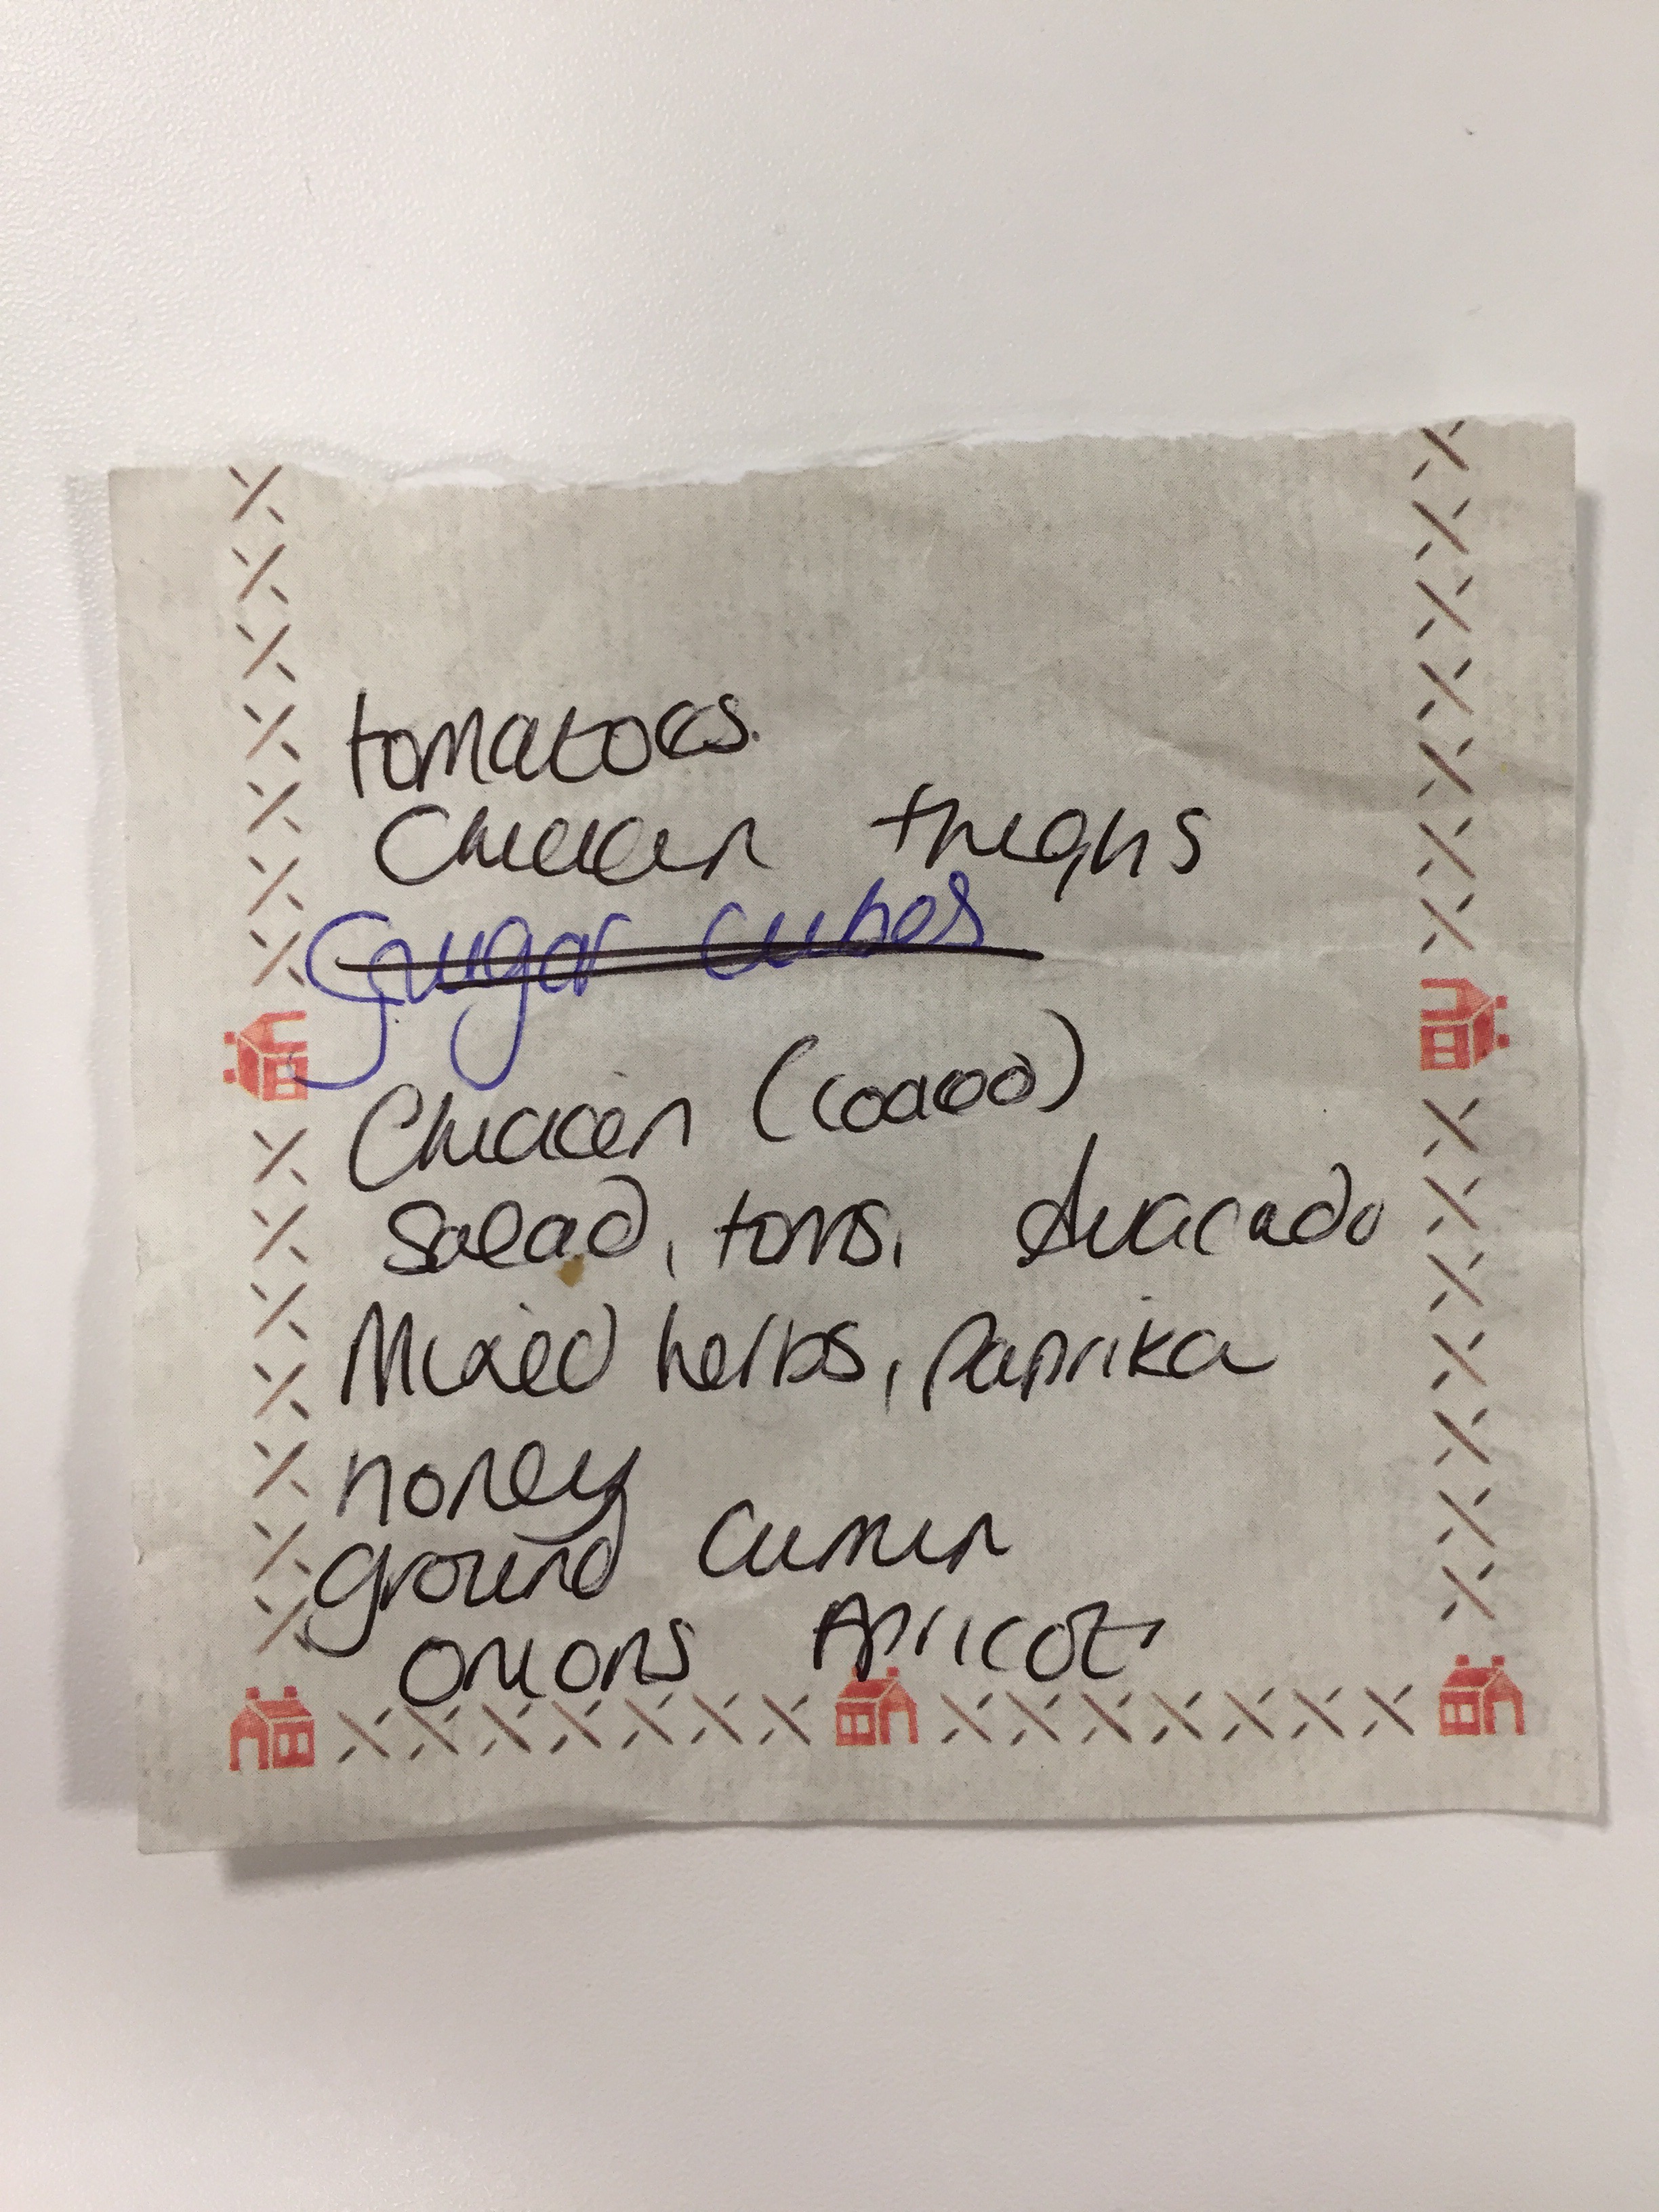 tomatoes.
Chicken thighs
Sugar cubes
Chicken (cooed)
Salad, toms, Avacado
Mixed herbs, paprika
honey
ground cumin
onions Apricots